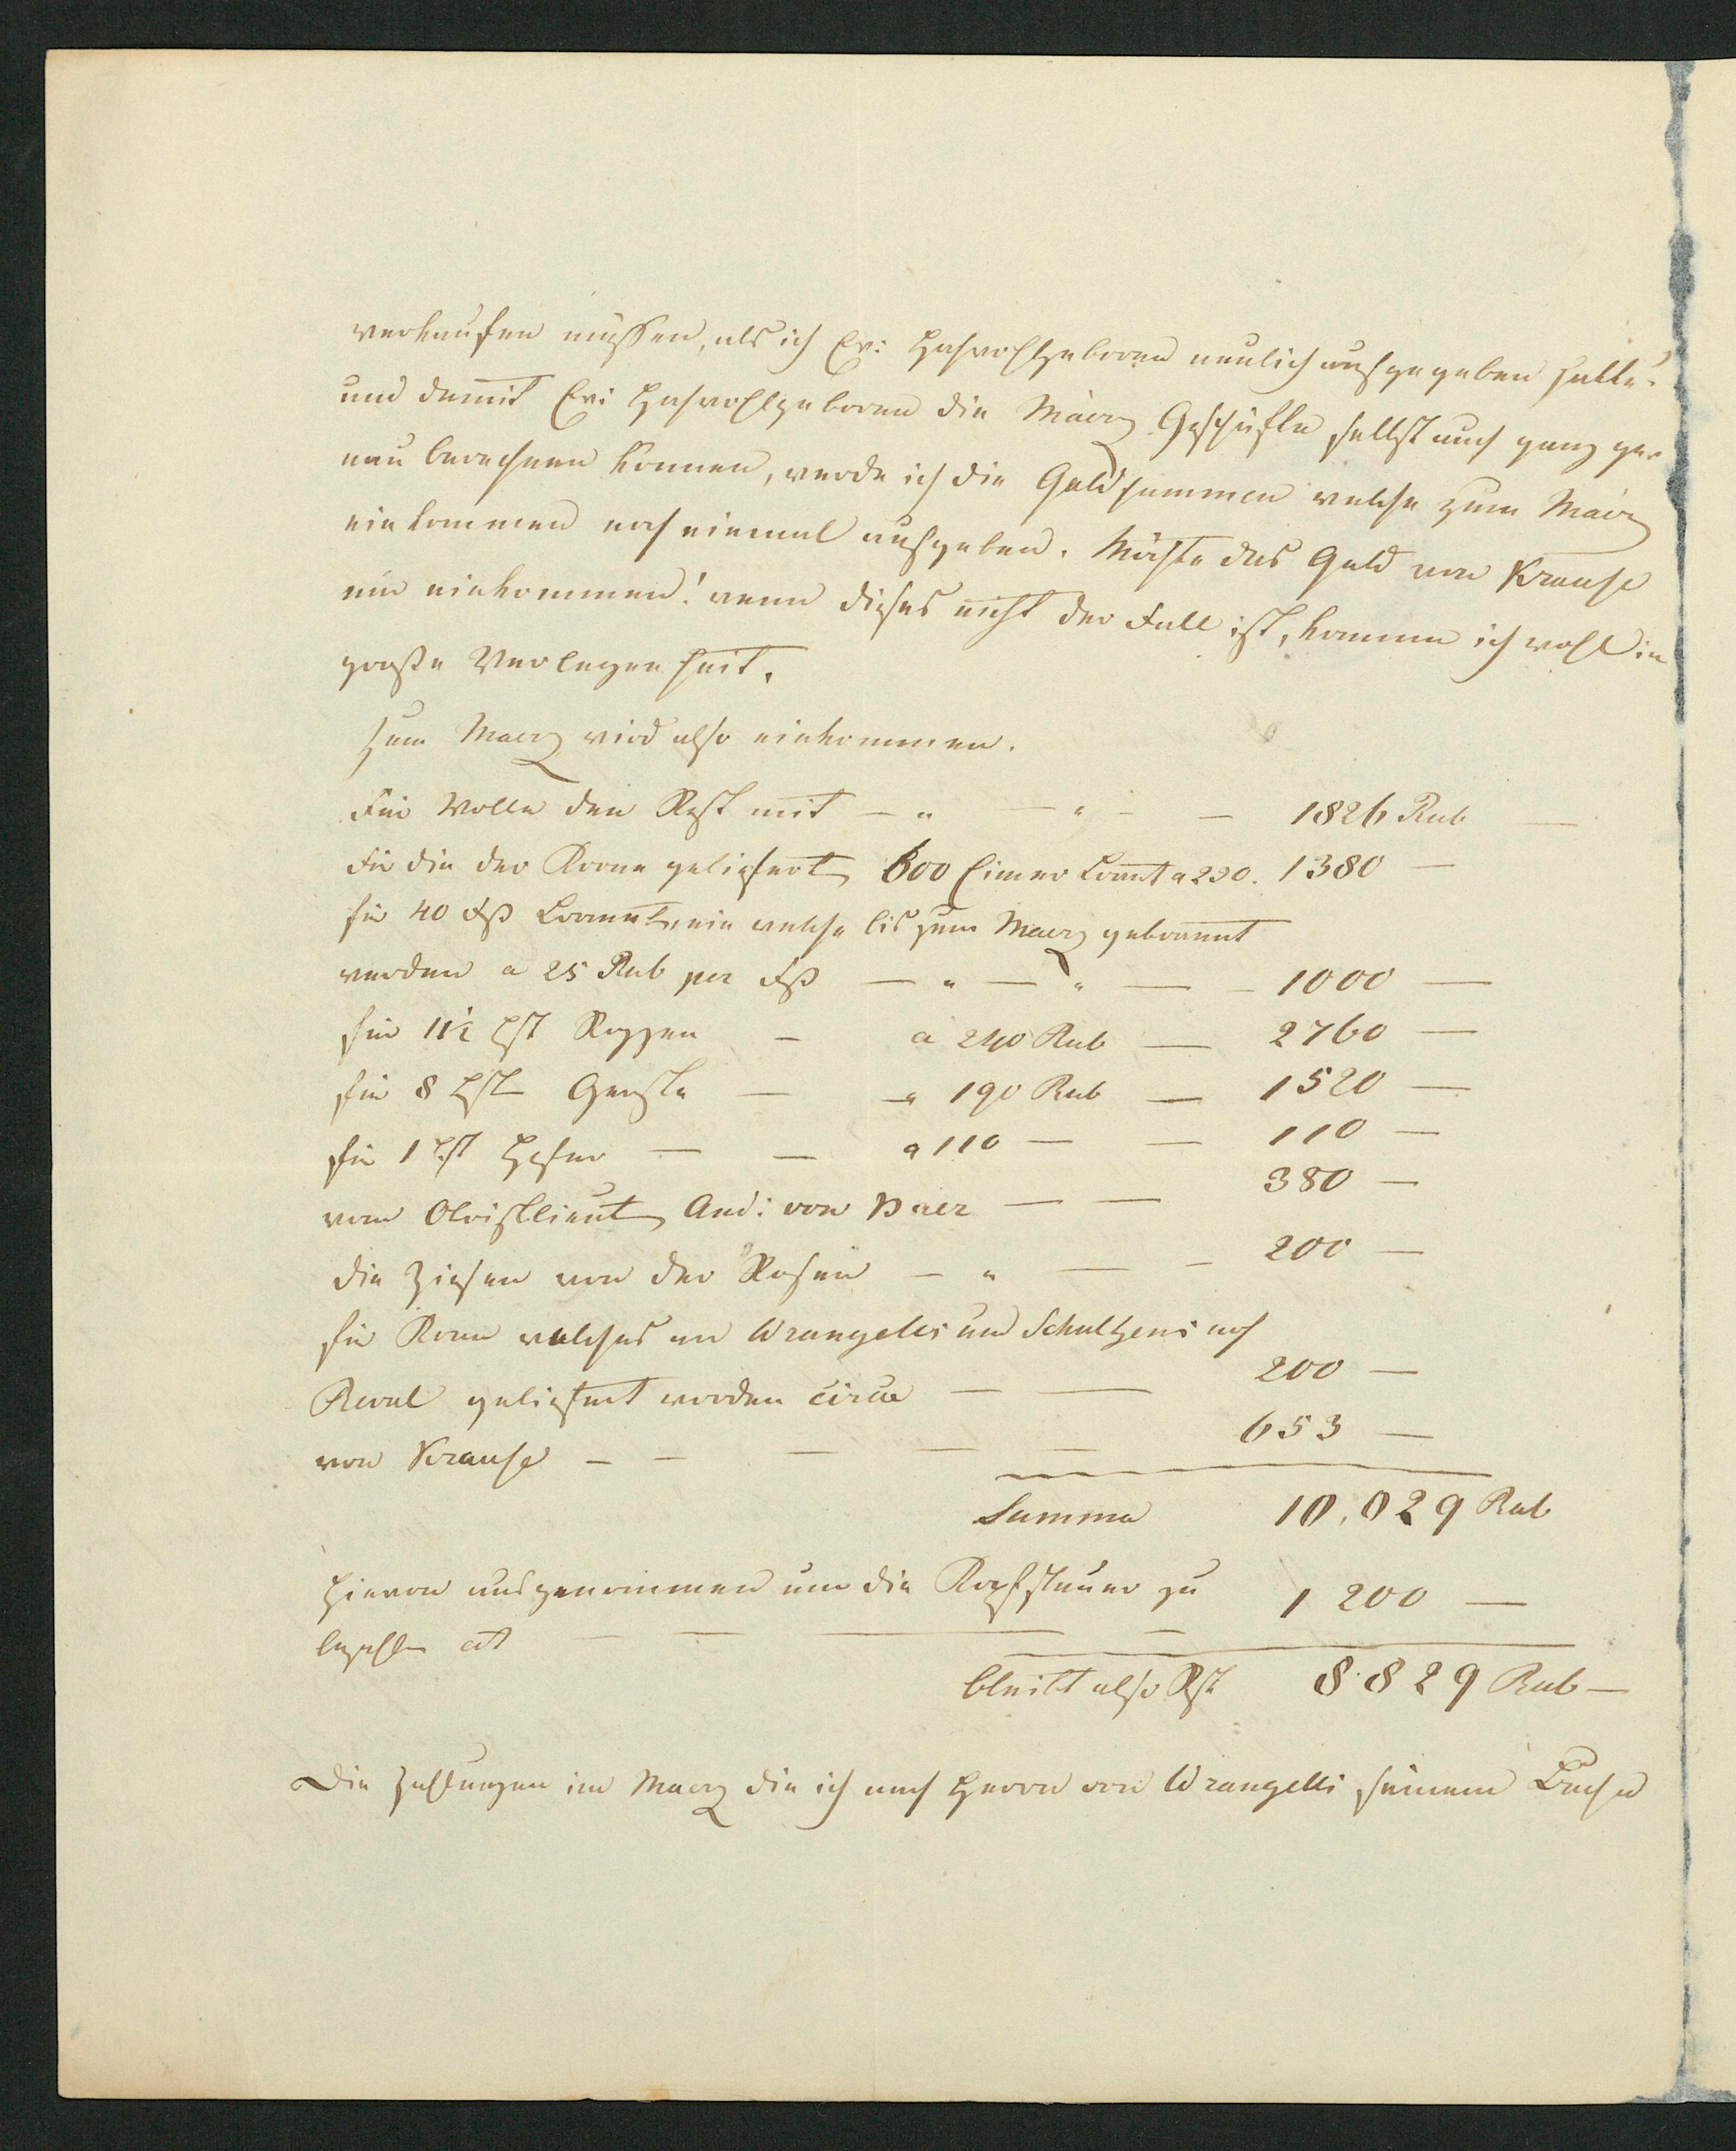 verkaufen müssen, als ich Ew: Hochwohlgeboren neulich aufgegeben hatte.
und damit Ew: Hochwohlgeboren die Maerz Geschäfte selbst auch ganz ge-
nau berechnen können, werde ich die Geldsummen welche zum Maerz
einkommen noch einmal aufgeben. Möchte das Geld von Krause
nur einkommen! wenn dieses nicht der Fall ist, komme ich wohl in
große Verlegenheit.
Zum Maerz wird also einkommen.
Für Wolle den Rest mit — " — " — — 1826 Rub —
Für die der Krone geliefert 600 Eimer Brant a 230. 1380 —
für 40 Fß Branntwein welche bis zum Maerz gebrannt
werden a 25 Rub per Fß — " — " — — 1000 —
für 11½ Lst Roggen — a 240 Rub — 2760 —
für 8 Lst Gerste — a 190 Rub — 1520 —
für 1 Lst Hafer — — a 110 — — 110 —
vom Obristlieut And: von Baer — — 380 —
die Zinsen von der Rosen — " — — 200 —
für Korn welches an Wrangells und Schultzens nach
Reval geliefert worden circa — — 200 —
von Krause — — — — — 653 —
Summa 10,029 Rub
Hievon ausgenommen um die Kopfsteuer zu 1200 —
bezahlen — — — —
bleibt also Rst 8829 Rub —
Die Zahlungen im Maerz die ich nach Herrn von Wrangells seinem Buche